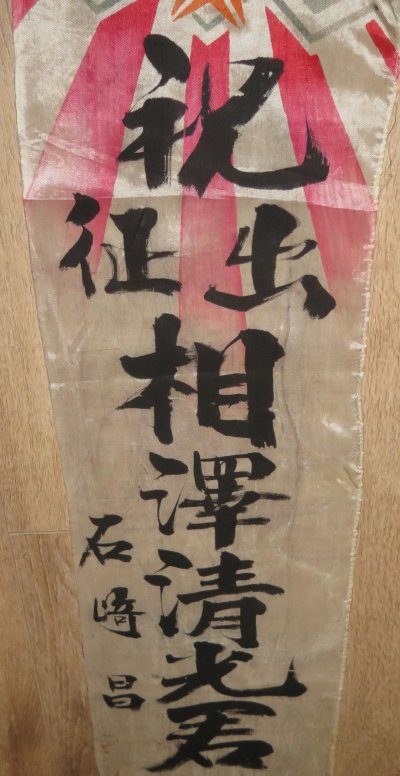 祝
出征
相澤清光君
石崎昌